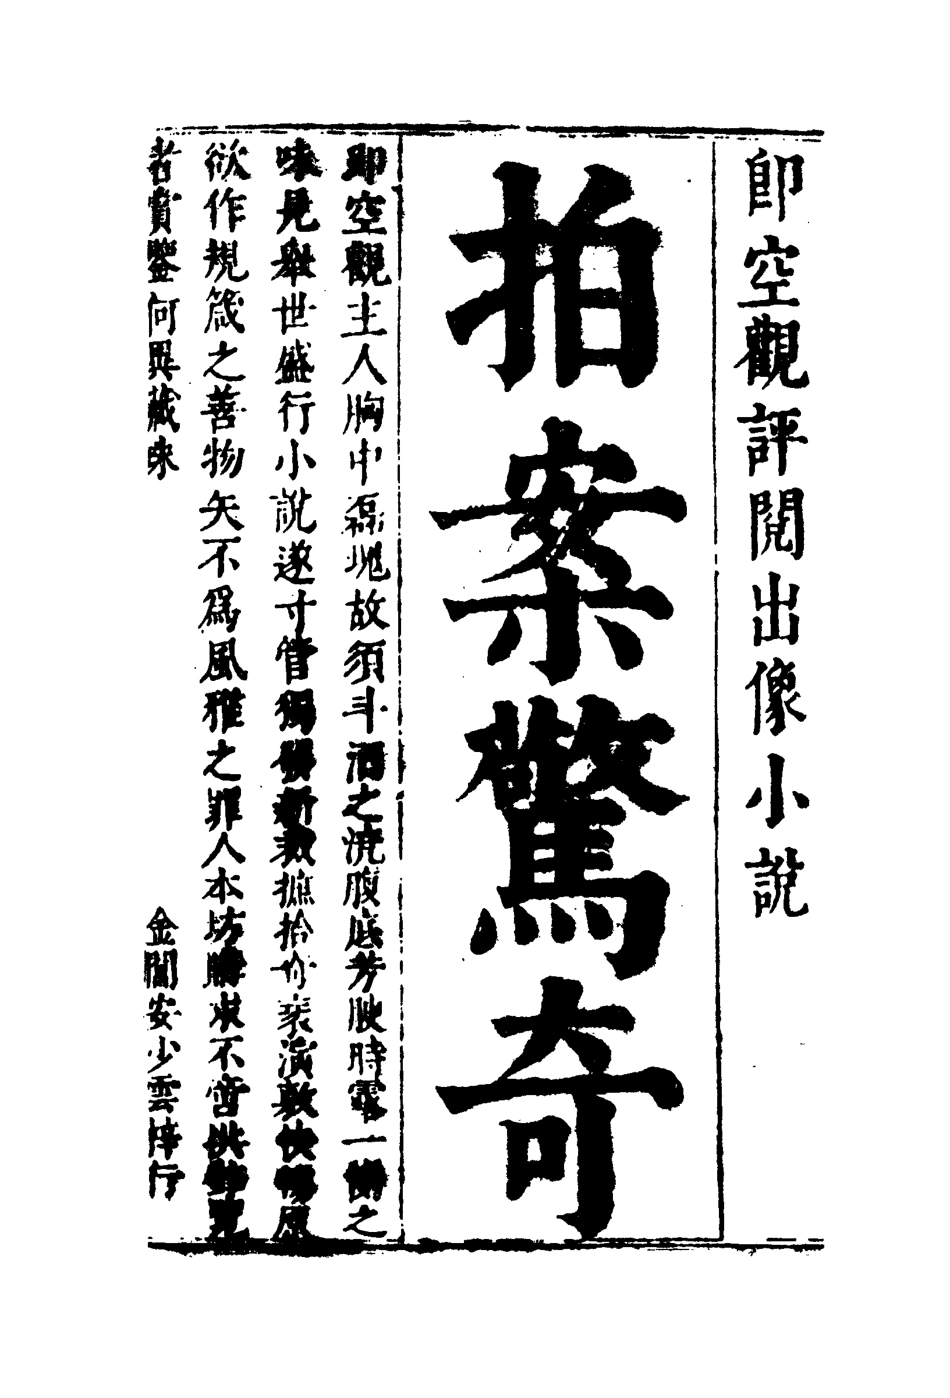 即空觀評閱出像小說
拍案驚奇
即空觀主人胸中磊塊故須斗酒之澆腹底芳腴時露一臠之
味見舉世盛行小說遂寸管獨發新裁摭拾奇衺演敷快暢原
欲作規箴之善物矢不為風雅之罪人本坊購求不啻拱璧覽
者賞鑒何異藏珠
金閶安少雲梓行